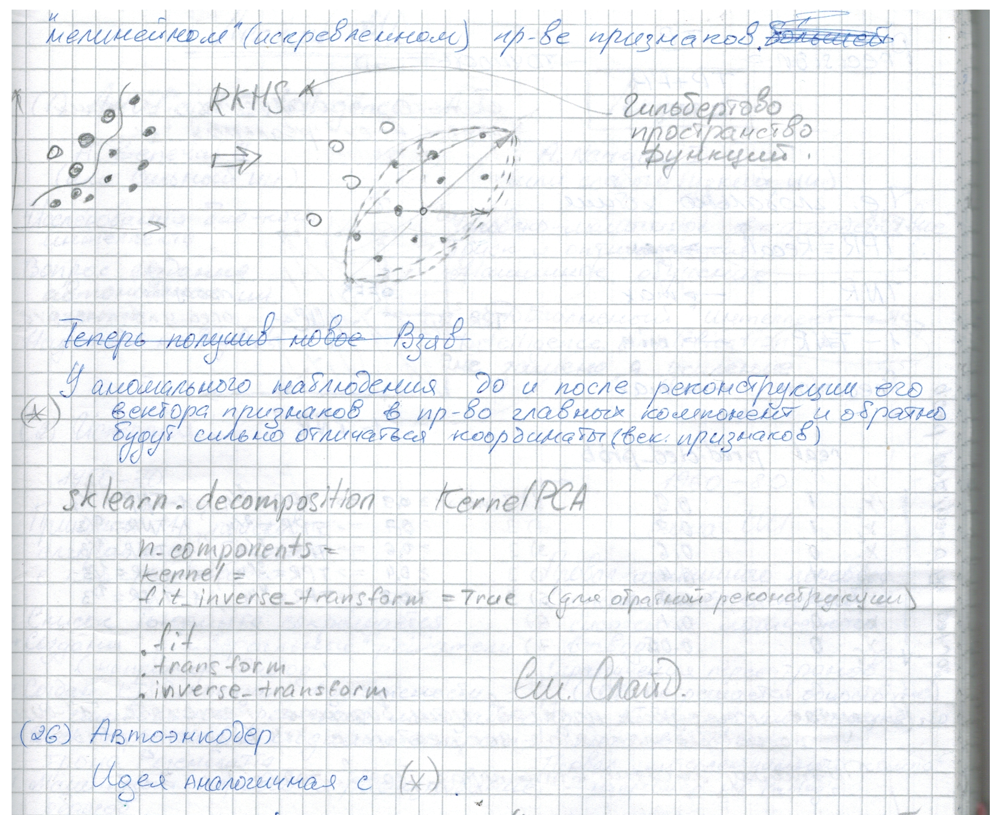 "нелинейном" (искревленном) пр-ве признаков. большей
RKHS
Гильбертово
пространство
функций.
Теперь получив новое Взяв
У аномального наблюдения до и после реконструкции его
(*) вектора признаков в пр-во главных компонент и обратно
будут сильно отличаться координаты (век. признаков)
sklearn. decomposition KernelPCA
n-components =
kernel =
fit_inverse_transform = True (для обратной реконструкции)
.fit
.transform
.inverse_transform
См. Слайд.
(26) Автоэнкодер
Идея аналогичная с (*).